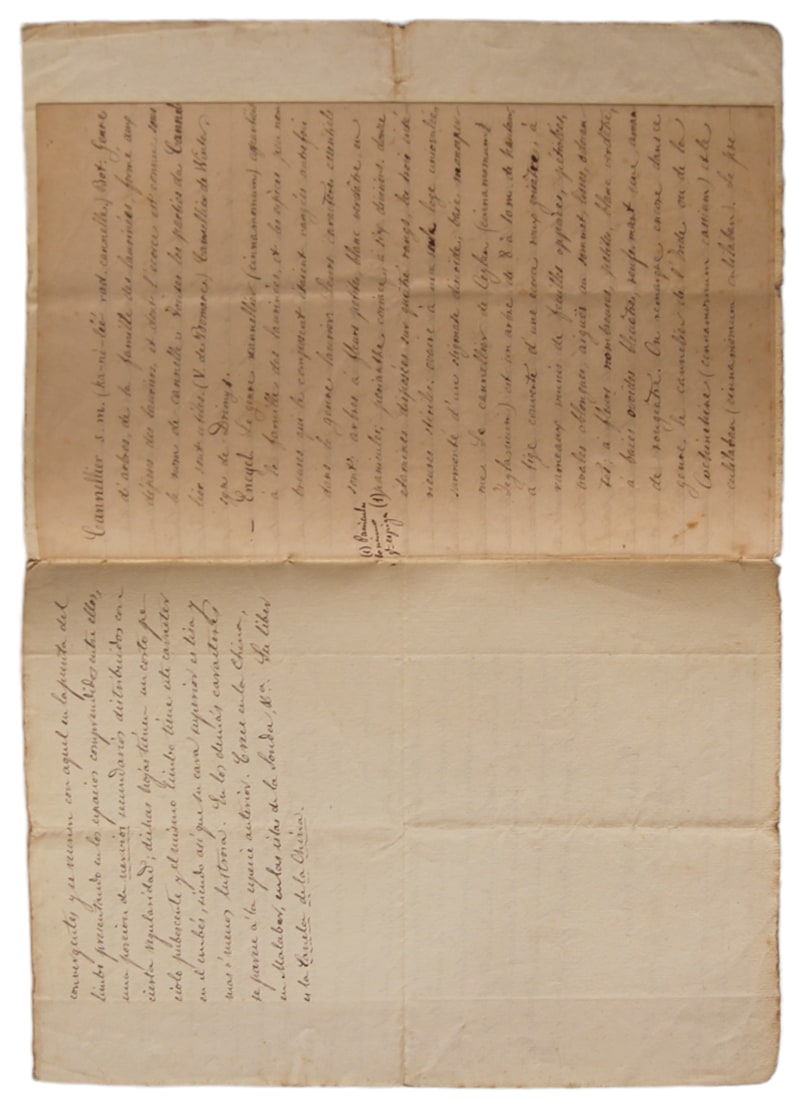 convergentes y se reunen con aquel en la punta del
limbo presentando en los espacios comprendidos entre ellos,
una porcion de nervios secundarios distribuidos con
cierta regularidad; dichas hojas tienen un corto pe-
ciolo pubescente y el mismo limbo tiene este caracter
en el embés, siendo asi que su cara superior es lisa y
mas ó menos lustrosa. En los demás caracteres
se parece á la especie anterior. Crece en la China,
en Malabar, en las islas de la Sonda, &a. Su liber
es la Canela de la China.
Cannellier s. m. (ka-né-lié rad. cannelle.) Bot. Genre
d'arbres, de la famille des laurinées, formé aux
dépens des lauriers, et dont l'écorce est connue sous
le nom de cannelle. Toutes les parties du Cannel-
lier sont utiles. (V. de Bomare) Cannellier de Winter,
syn. de Drimys.
— Encycl. Le genre cannellier (cinnamomum) appartient
à la famille des laurinées, et les espèces peu nom-
breuses qui le composent étaient rangées autrefois
dans le genre laurier. Leurs caractères essentiels
sont: arbre à fleurs petites, blanc verdâtre en
(1) Panicule
(1) panicules; périanthe coriace, à six divisions, douze
étamines disposées sur quatre rangs, les trois inté-
rieures stériles, ovaire à une seule loge uniovulée,
surmonté d'un stigmate discoide, baie monosper-
me. Le cannellier de Ceylan (cinnamomum
zeylanicum) est un arbre de 8 à 10 m. de hauteur,
à tige couverte d'une écorce roux grisâtre, à
rameaux munis de feuilles opposées, pétiolées,
ovales oblongues, aiguës au sommet, lisses, odoran-
tes, à fleurs nombreuses, petites, blanc verdâtre,
à baies ovoïdes bleuâtres, renfermant une aman-
de rougeâtre. On remarque encore dans ce
genre le cannelier de l'Inde ou de la
Cochinchine (cinnamomum cassium) et le
culilaban (cinnamomum culilaban). Le pre-